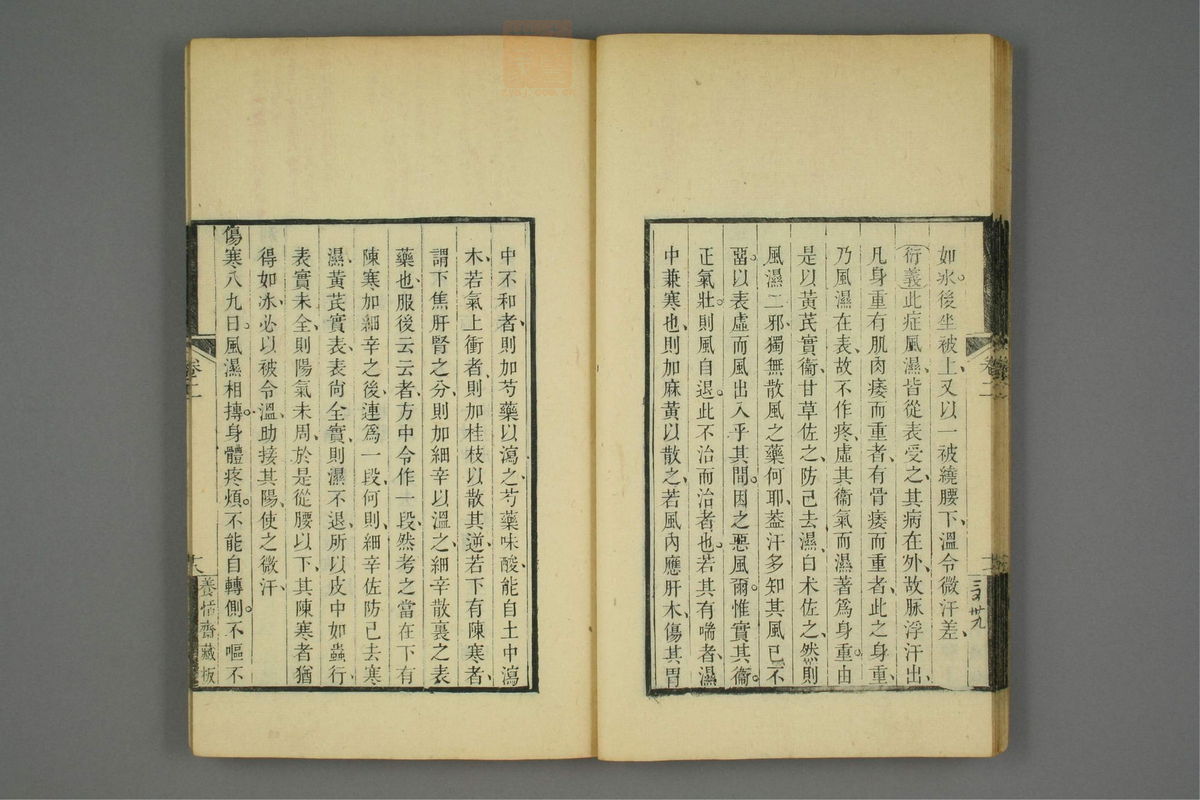 如氷後坐被上又以一被繞腰下溫令微汗差
衍義此症風濕皆從表受之其病在外故脉浮汗出
凡身重有肌肉痿而重者有骨痿而重者此之身重
乃風濕在表故不作疼虛其衞氣而濕著爲身重由
是以黃芪實衞甘草佐之防己去濕白朮佐之然則
風濕二邪獨無散風之藥何耶葢汗多知其風已不
畱以表虛而風出入乎其間因之惡風爾惟實其衞
正氣壯則風自退此不治而治者也若其有喘者濕
中兼寒也則加麻黃以散之若風內應肝木傷其胃
中不和者則加芍藥以瀉之芍藥味酸能自土中瀉
木若氣上衝者則加桂枝以散其逆若下有陳寒者
謂下焦肝腎之分則加細辛以溫之細辛散裏之表
藥也服後云云者方中令作一段然考之當在下有
陳寒加細辛之後連爲一段何則細辛佐防己去寒
濕黃芪實表表尙全實則濕不退所以皮中如蟲行
表實未全則陽氣未周於是從腰以下其陳寒者猶
得如氷必以被令溫助接其陽使之微汗
傷寒八九日風濕相摶身體疼煩不能自轉側不嘔不
卷二
養恬齋藏板